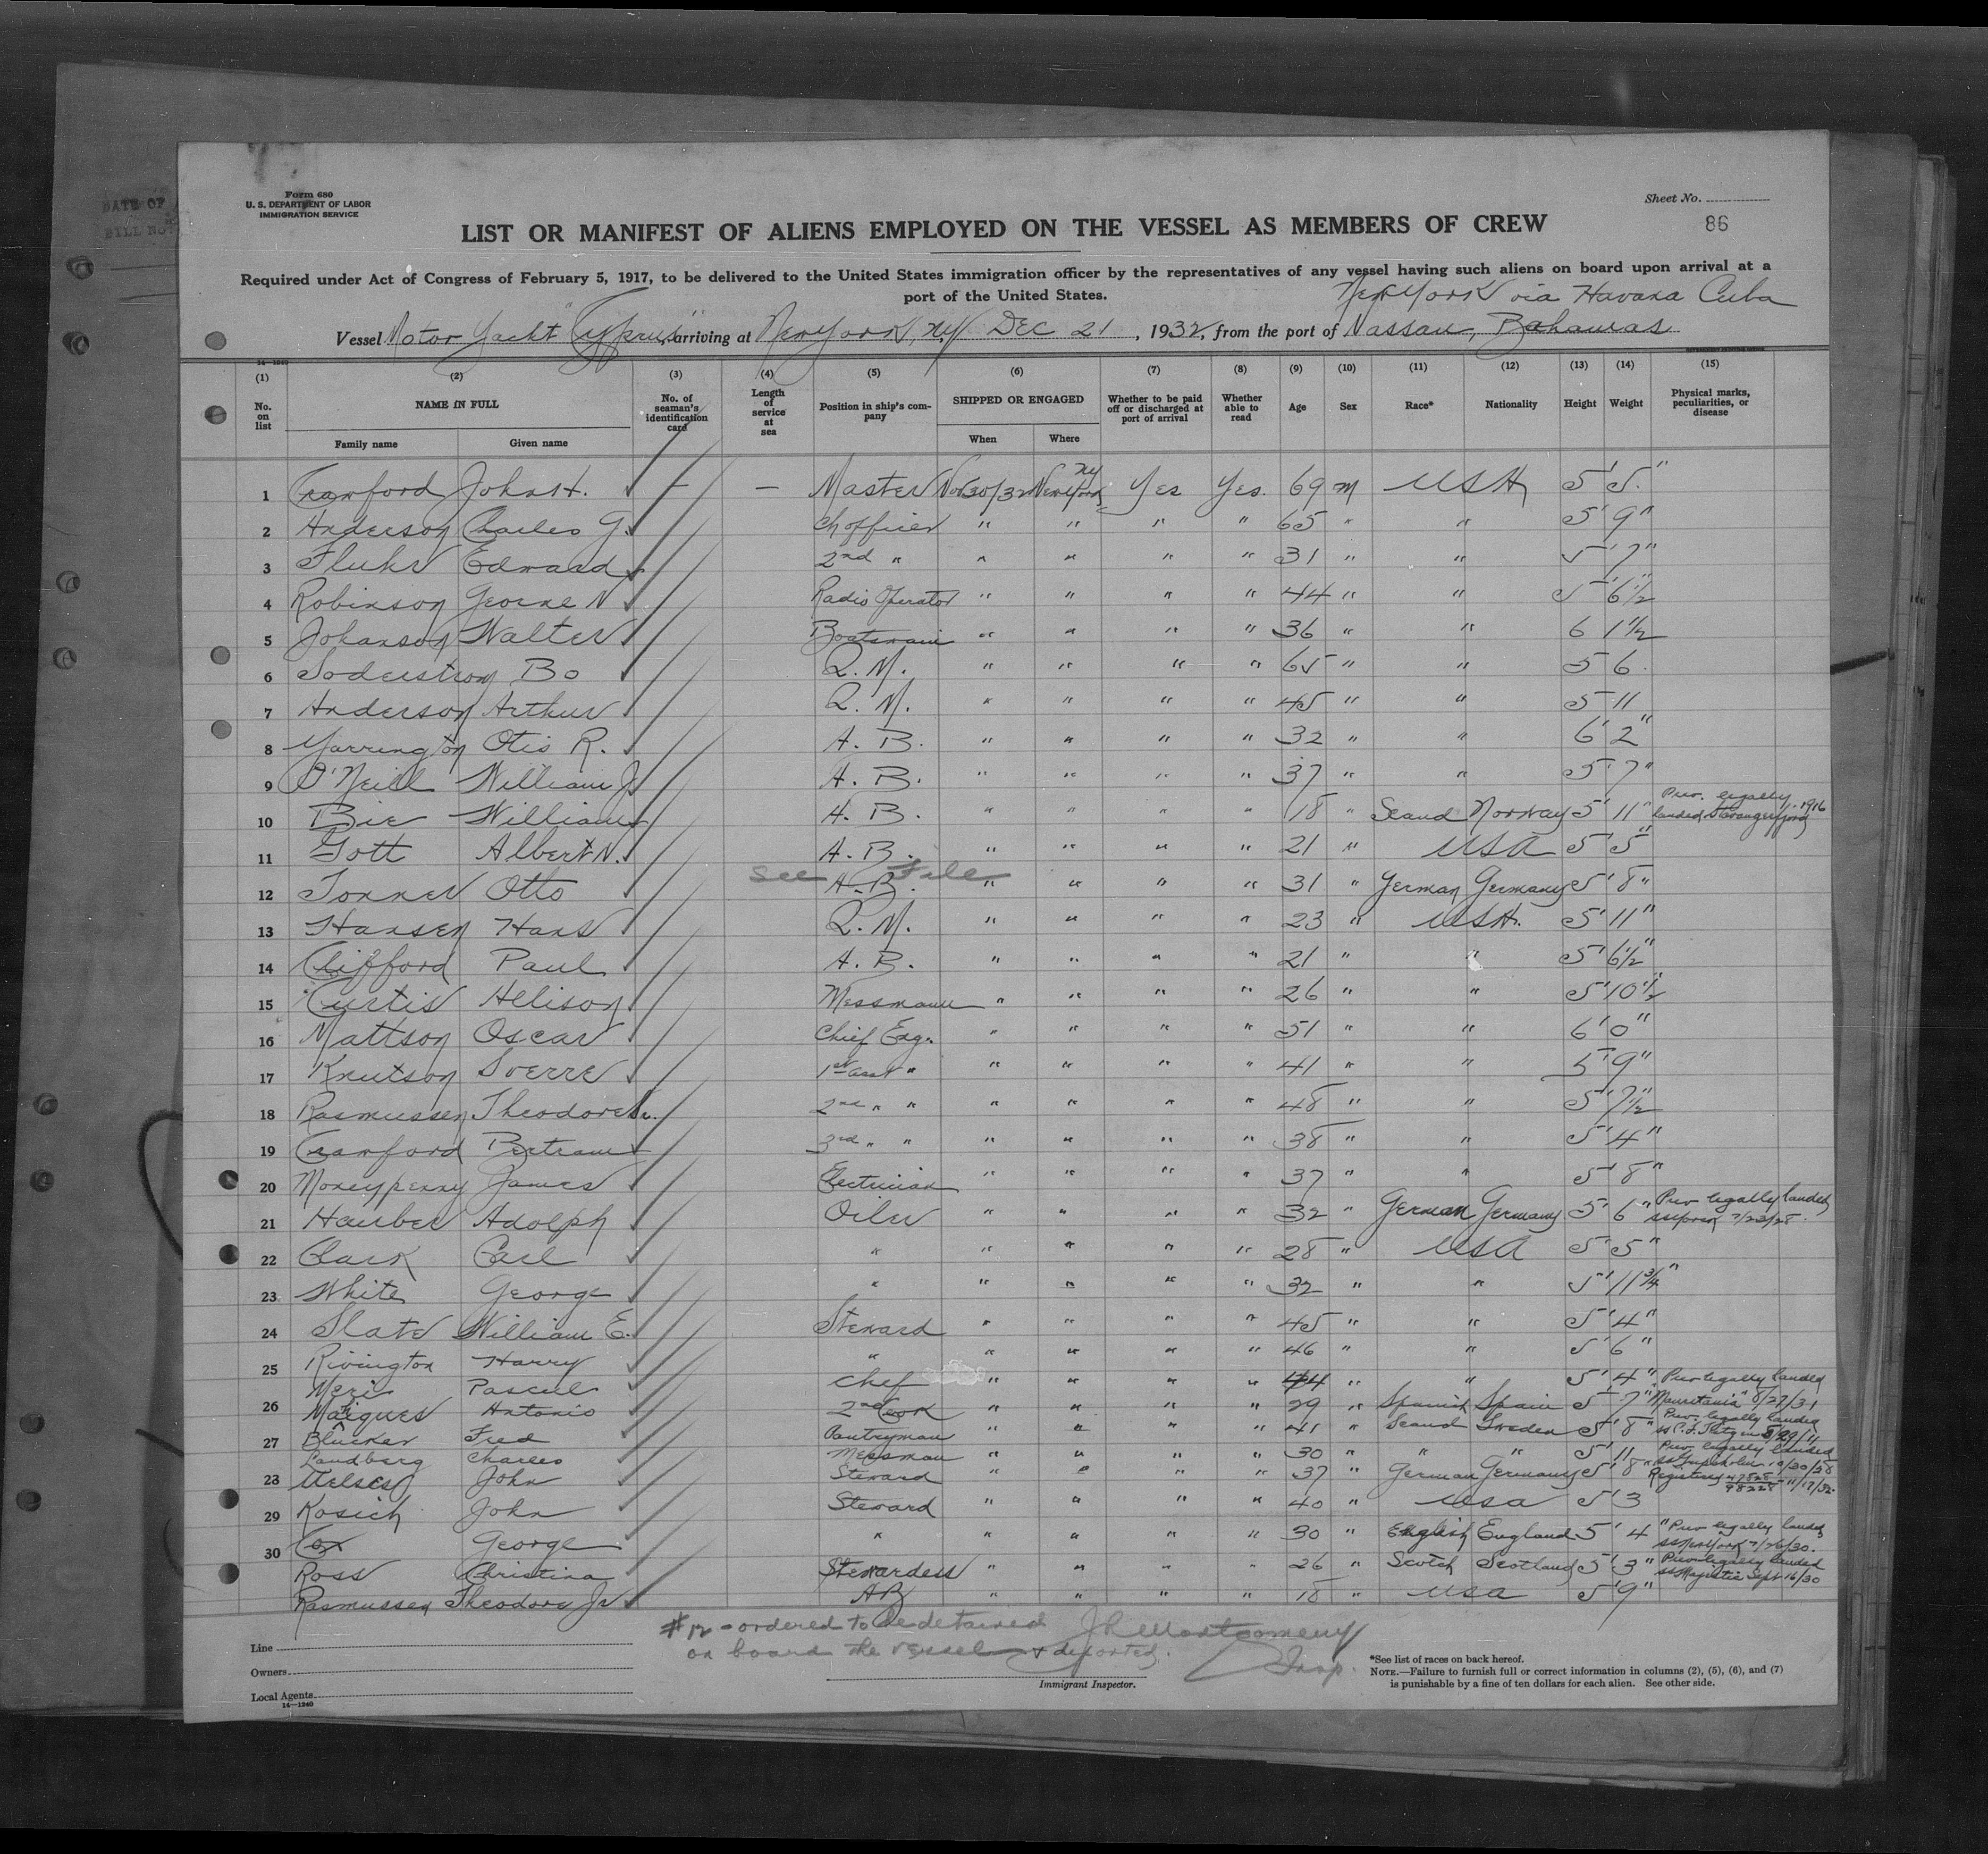 DATE OF
BILL NO
Form 680
U. S. DEPARTMENT OF LABOR
IMMIGRATION SERVICE
Sheet No.
86
LIST OR MANIFEST OF ALIENS EMPLOYED ON THE VESSEL AS MEMBERS OF CREW
Required under Act of Congress of February 5, 1917, to be delivered to the United States immigration officer by the representatives of any vessel having such aliens on board upon arrival at a
port of the United States.
New York via Havana Cuba
Vessel Motor Yacht "Cyprus", arriving at New York, NY, Dec 21, 1932, from the port of Nassau, Bahamas
14—1240
(1) (2) (3) (4) (5) (6) (7) (8) (9) (10) (11) (12) (13) (14) (15)
No. on list NAME IN FULL No. of seaman's identification card Length of service at sea Position in ship's company SHIPPED OR ENGAGED Whether to be paid off or discharged at port of arrival Whether able to read Age Sex Race* Nationality Height Weight Physical marks, peculiarities, or disease
Family name Given name When Where
1 Crawford John H. — — Master Nov 30/32 New York, NY Yes Yes. 69 M USA 5' 5"
2 Anderson Charles G. Ch officer " " " " 65 " " 5' 9"
3 Fluhr Edward 2nd " " " " " 31 " " 5' 7"
4 Robinson George N Radio Operator " " " " 44 " " 5' 6½"
5 Johanson Walter Boatswain " " " " 36 " " 6 1½"
6 Soderstrom Bo Q. M. " " " " 65 " " 5 6
7 Anderson Arthur Q. M. " " " " 45 " " 5 11
8 Yarrington Otis R. A. B. " " " " 32 " " 6' 2"
9 O'Neill William J A. B. " " " " 37 " " 5' 7"
10 Bie William A. B. " " " " 18 " Scand Norway 5' 11" Prev. legally landed Stavangerfjord 1916
11 Gott Albert N. A. B. " " " " 21 " USA 5' 5"
see File
12 Tonner Otto A. B. " " " " 31 " German Germany 5' 8"
13 Hansen Hans Q. M. " " " " 23 " USA. 5' 11"
14 Clifford Paul A. B. " " " " 21 " " 5' 6½"
15 Curtis Allison Messmann " " " " 26 " " 5' 10½
16 Mattson Oscar Chief Eng. " " " " 51 " " 6' 0"
17 Knutson Sverre 1st asst " " " " " 41 " " 5' 9"
18 Rasmussen Theodore Sr. 2nd " " " " " " 48 " " 5' 7½"
19 Crawford Bertram 3rd " " " " " " 38 " " 5' 4"
20 Moneypenny James Electrician " " " " 37 " " 5' 8"
21 Hauber Adolph Oiler " " " " 32 " German Germany 5' 6" Prev legally landed SS York 7/23/28.
22 Clark Carl " " " " " 28 " USA 5' 5"
23 White George " " " " " 32 " " 5' 11¾"
24 Slate William E. Steward " " " " 45 " " 5' 4"
25 Rivington Harry " " " " " 46 " " 5' 6"
Meri Pascul Chef " " " " 44 " " 5' 4"
26 Antonio 2nd Cook " " " " 29 " Spanish Spain 5' 7" Prev legally landed "Mauretania" 8/27/31
27 Blucker Fred Pantryman " " " " 41 " Scand Sweden 5' 8" Prev. legally landed
Landberg Charles Messman " " " " 30 " " " 5' 11 Prev legally landed
28 John Steward " " " " 37 " German Germany 5' 8" Registry 11/17/32.
29 Kosich John Steward " " " " 40 " USA 5' 3
30 Cox George " " " " " 30 " English England 5' 4" Prev legally landed SS New York 7/26/30.
Ross Christina Stewardess " " " " 26 " Scotch Scotland 5' 3" Prev legally landed SS Majestic Sept 16/30
Rasmussen Theodore Jr AB " " " " 18 " USA 5' 9"
#12 - ordered to be detained
on board the vessel & deported.
J R Montgomery
Insp.
Line
Owners
Local Agents
14—1240
Immigrant Inspector.
*See list of races on back hereof.
NOTE.—Failure to furnish full or correct information in columns (2), (5), (6), and (7)
is punishable by a fine of ten dollars for each alien. See other side.